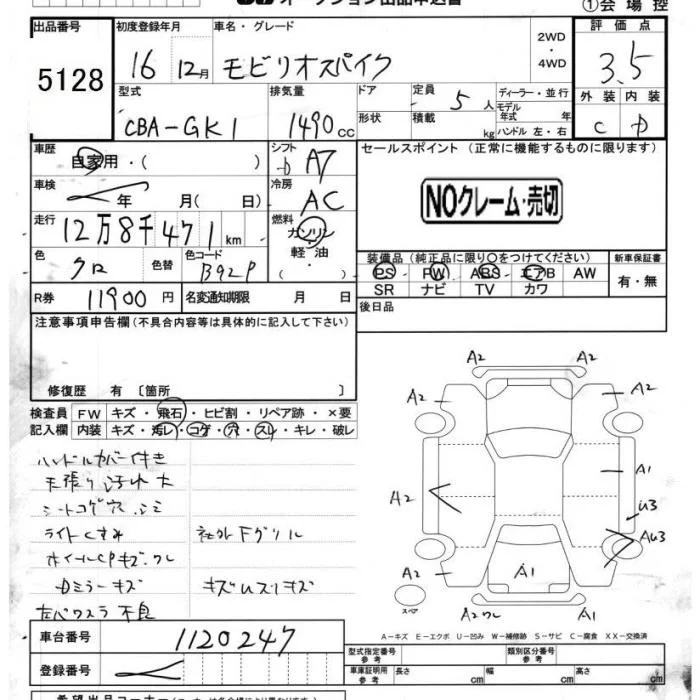 オークション出品申込書
①会場控
出品番号 初度登録年月 車名・グレード 2WD・4WD 評価点
5128 16 12月 モビリオスパイク 3.5
型式 排気量 ドア 定員 ディーラー・並行 外装 内装
CBA-GK1 1490cc 5人 モデル年式 年 C D
形状 積載 kg ハンドル 左・右
車歴 自家用・( ) シフト D AT セールスポイント(正常に機能するものに限ります)
車検 年 月( 日) 冷房 AC NOクレーム・売切
走行 12万8千471km 燃料 ガソリン・軽油・( )
色 クロ 色替 色コード B92P 装備品(純正品に限り○をつけてください) 新車保証書
PS PW ABS エアB AW 有・無
SR ナビ TV カワ
R券 11900円 名変通知期限 月 日 後日品
注意事項申告欄(不具合内容等は具体的に記入して下さい)
修復歴 有 〔箇所 〕
検査員記入欄 FW キズ・飛石・ヒビ割・リペア跡・×要
内装 キズ・汚レ・コゲ・穴・スレ・キレ・破レ
ハンドルカバー付き
天張り汚れ大
シートコゲ穴シミ
ライトくすみ 社外Fグリル
ホイールCPキズ・ワレ
Dミラーキズ キズUスリキズ
左パワスラ不良
A2 A2
A2 A2
A2 A1
U3
AU3
A2 A1
スペア A2ワレ A1
A-キズ E-エクボ U-凹み W-補修跡 S-サビ C-腐食 XX-交換済
車台番号 1120247
登録番号
型式指定番号 参考 類別区分番号 参考
車庫証明用 参考 長さ cm 幅 cm 高さ cm
希望出品コーナー